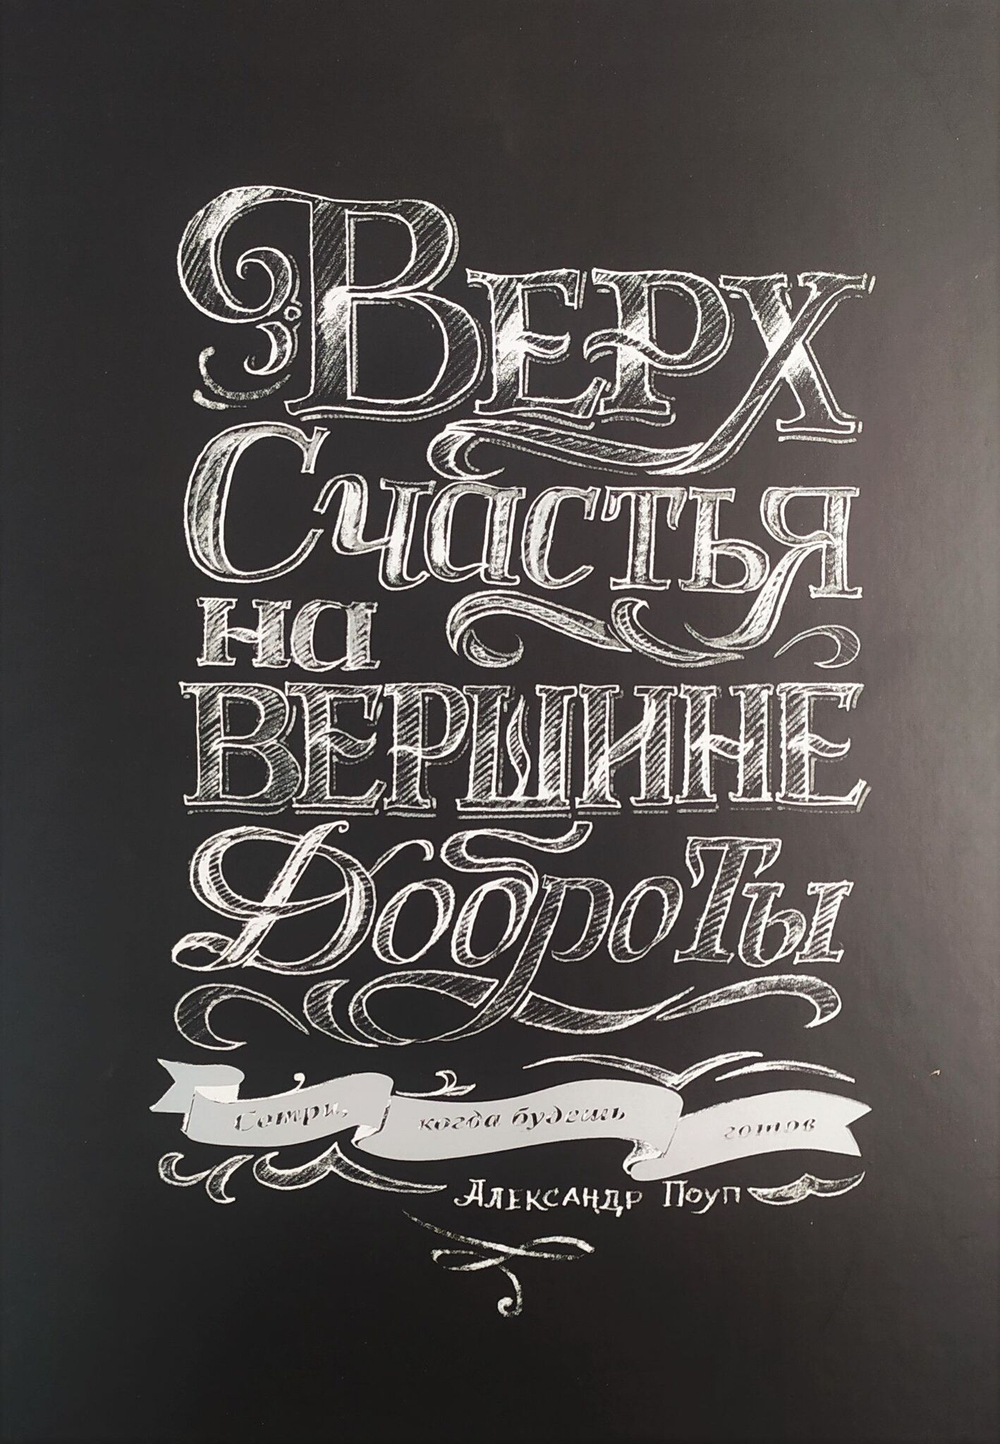 Верх
Счастья
на
ВЕРШИНЕ
ДоброТы
Сотри, когда будешь готов
Александр Поуп